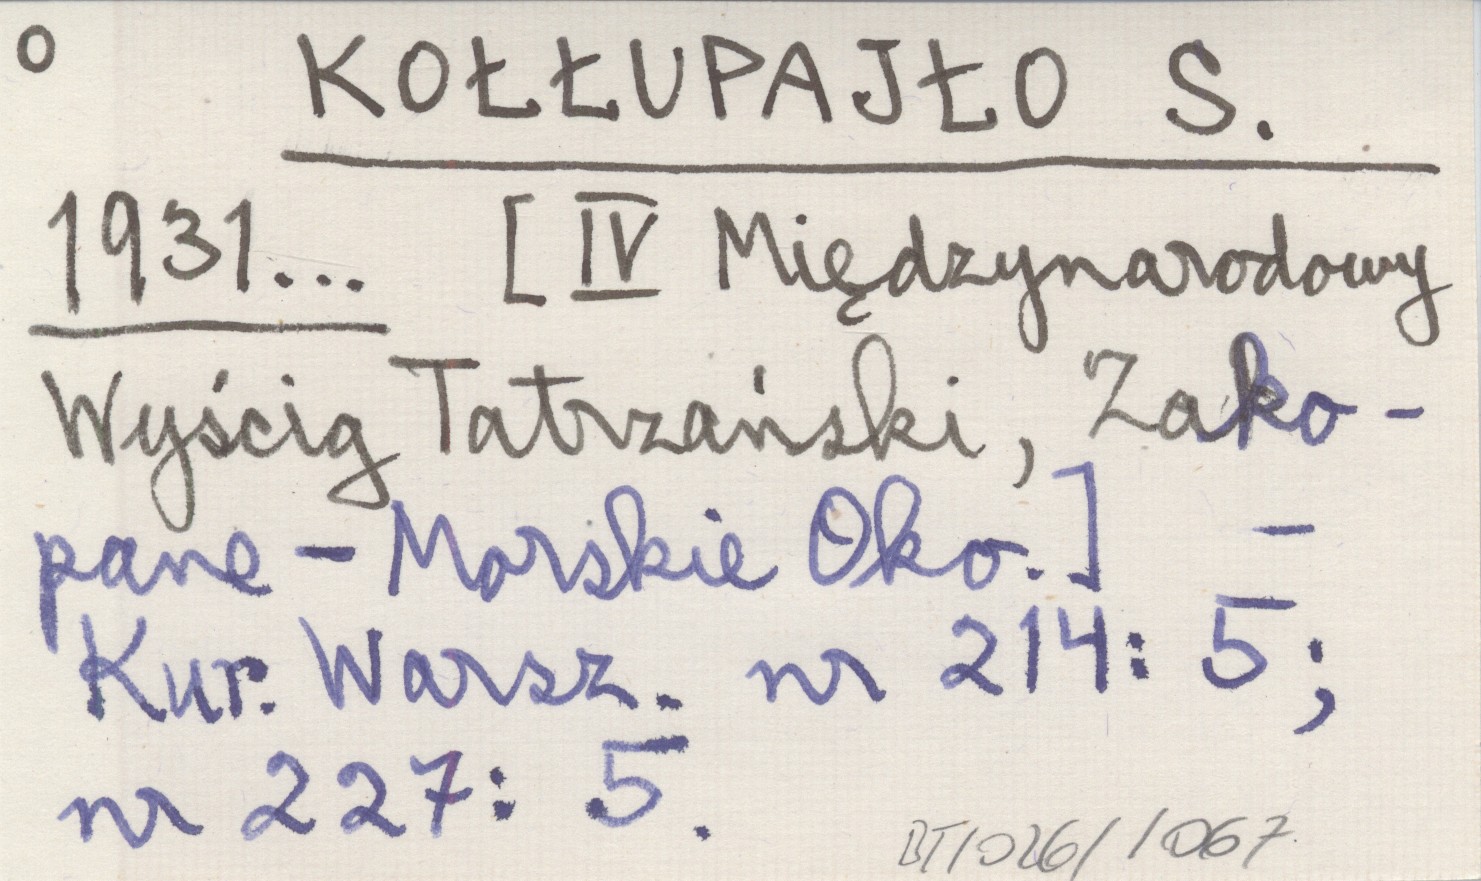 o KOŁŁUPAJŁO S.
1931... [IV Międzynarodowy
Wyścig Tatrzański, Zako-
pane - Morskie Oko.] -
Kur. Warsz. nr 214: 5;
nr 227: 5.
BT/026/1067